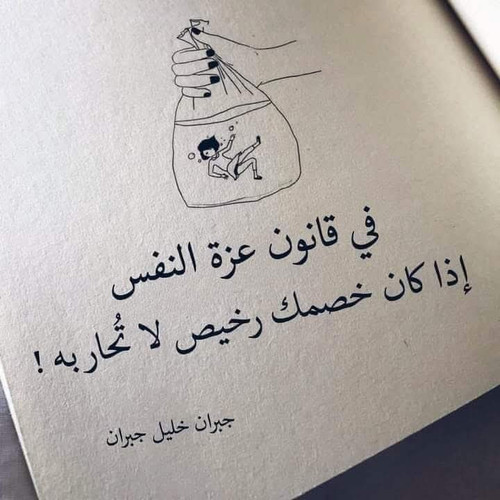 في قانون عزة النفس
إذا كان خصمك رخيص لا تُحاربه !
جبران خليل جبران